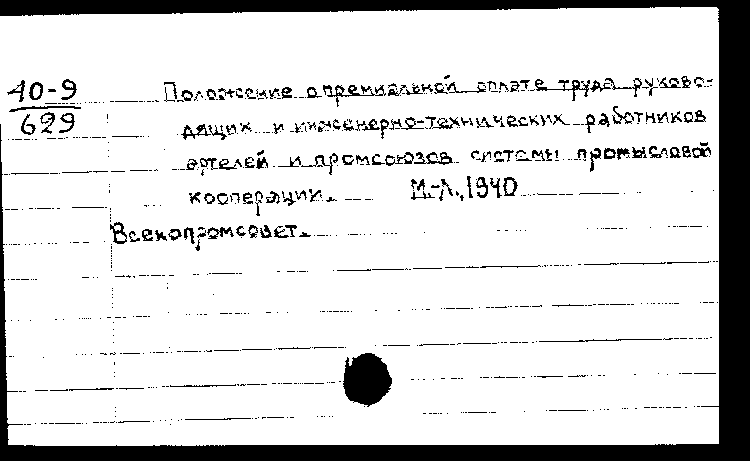 40-9
629
Положение о премиальной оплате труда руково-
дящих и инженерно-технических работников
артелей и промсоюзов системы промысловой
кооперации. М.-Л., 1940
Всекопромсовет.